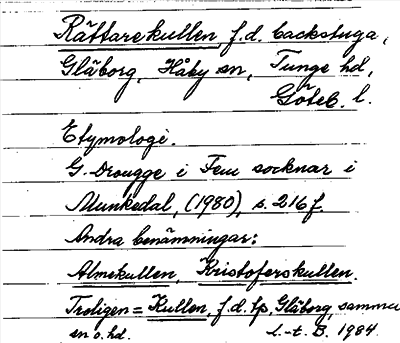 Rättarekullen, f.d. backstuga,
Glåborg, Håby sn, Tunge hd,
Göteb. l.
Etymologi.
G. Drougge i Fem socknar i
Munkedal, (1980), s. 216 f.
Andra benämningar:
Almekullen, Kristoferskullen.
Troligen = Kullen, f.d. tp, Glåborg, samma
sn o. hd. L.-t. B. 1984